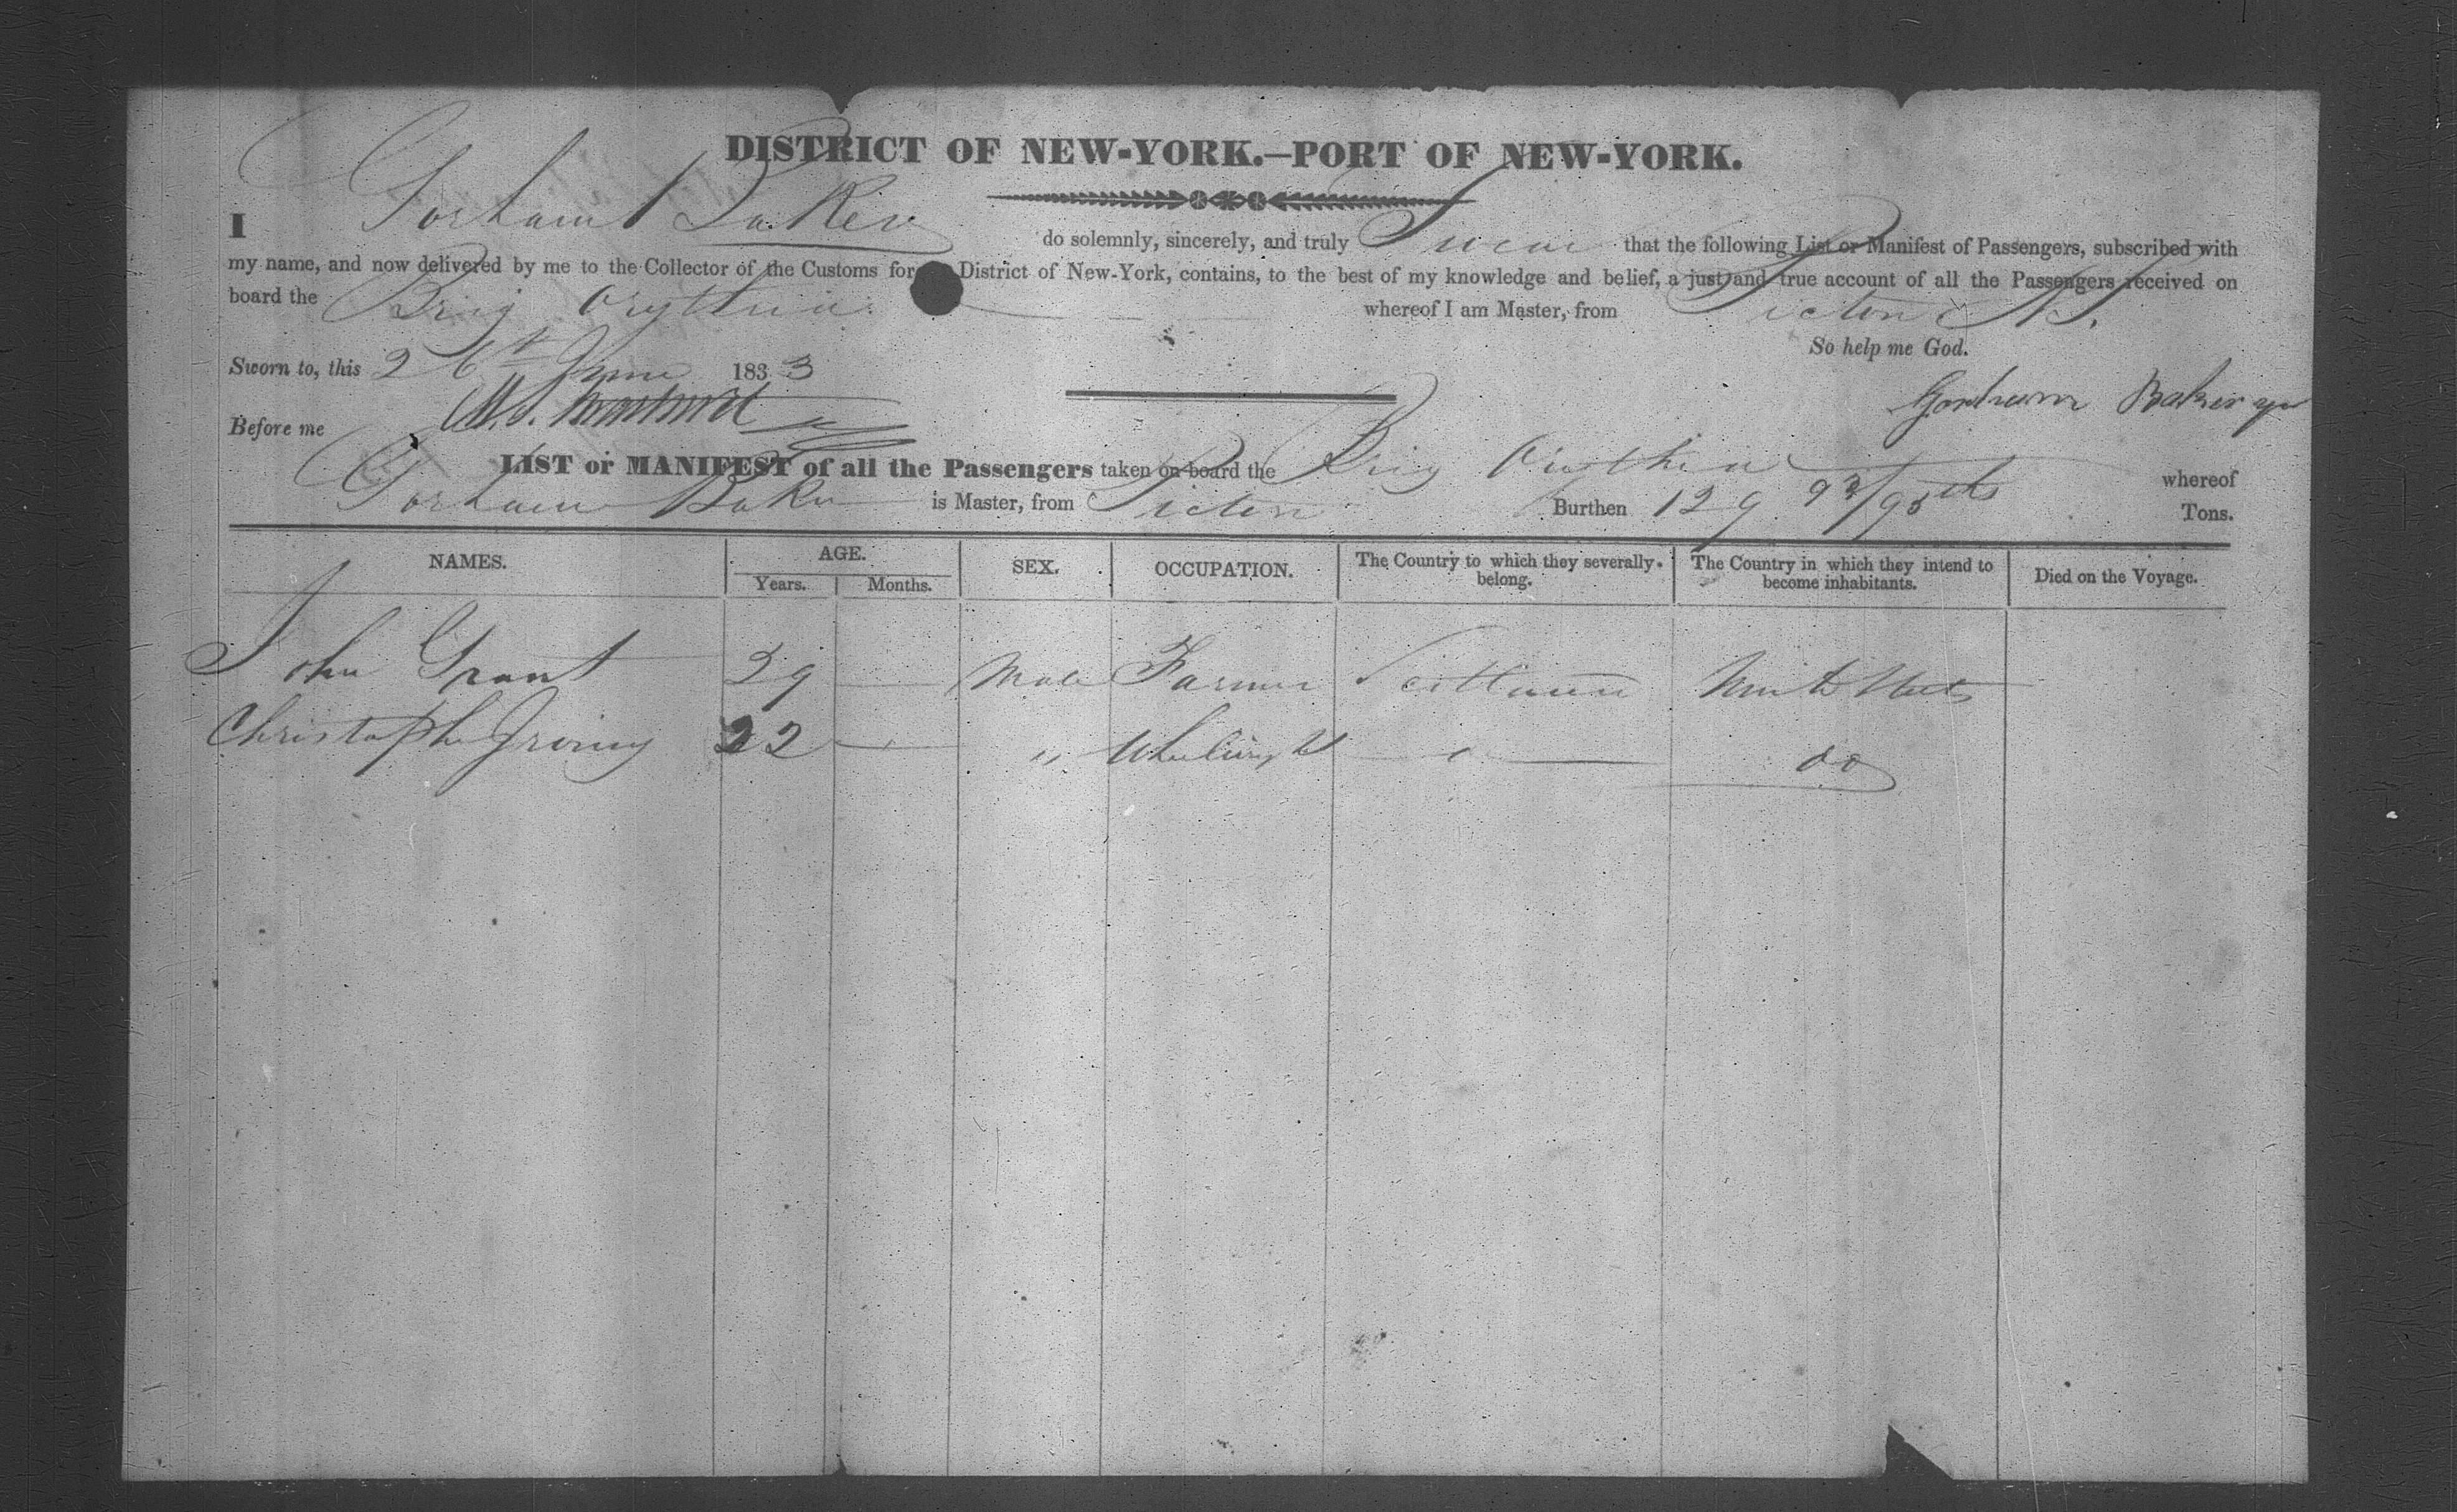 DISTRICT OF NEW-YORK.—PORT OF NEW-YORK.
I Gorham Baker do solemnly, sincerely, and truly Swear that the following List or Manifest of Passengers, subscribed with
my name, and now delivered by me to the Collector of the Customs for District of New-York, contains, to the best of my knowledge and belief, a just and true account of all the Passengers received on
board the Brig Orythia whereof I am Master, from Pictou N.S.
So help me God.
Sworn to, this 26th June 1833
Gorham Baker
Before me
LIST or MANIFEST of all the Passengers taken on board the Brig whereof
Gorham Baker is Master, from Pictou Burthen 129 93/95ths Tons.
NAMES. AGE. SEX. OCCUPATION. The Country to which they severally belong. The Country in which they intend to become inhabitants. Died on the Voyage.
Years. Months.
John Grant 29 — Male Farmer Scotland United States
Christophe Irving 22 — " Wheelwright " — do